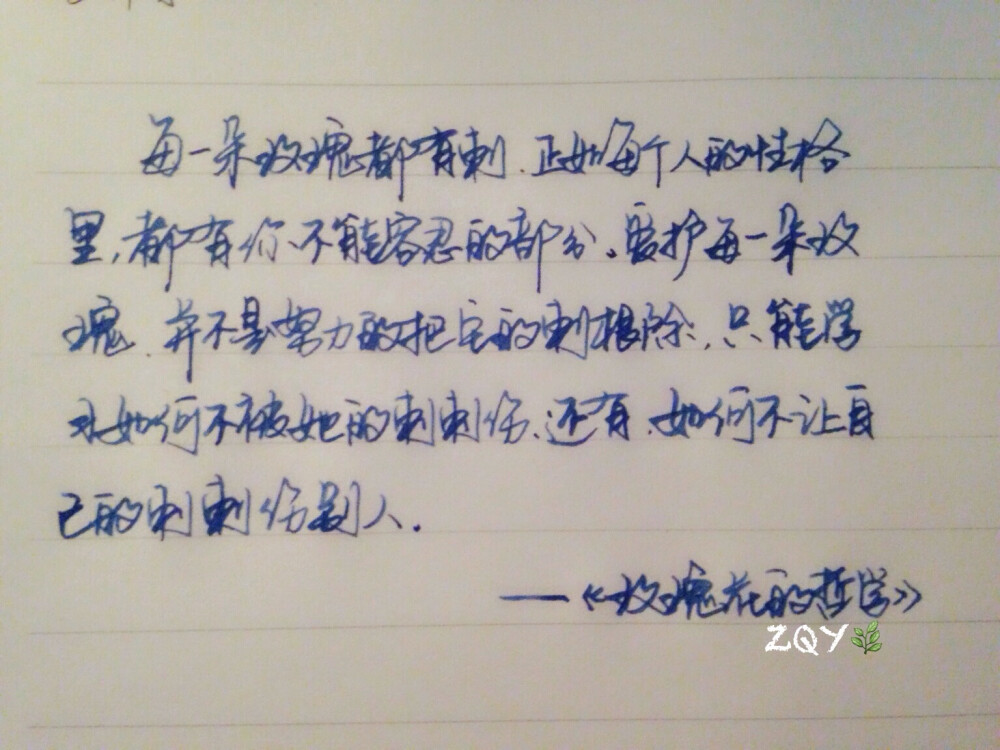 每一朵玫瑰都有刺.正如每个人的性格
里,都有你不能容忍的部分。爱护每一朵玫
瑰.并不是努力的把它的刺根除,只能学
习如何不被她的刺刺伤、还有.如何不让自
己的刺刺伤别人.
——《玫瑰花的哲学》
ZQY